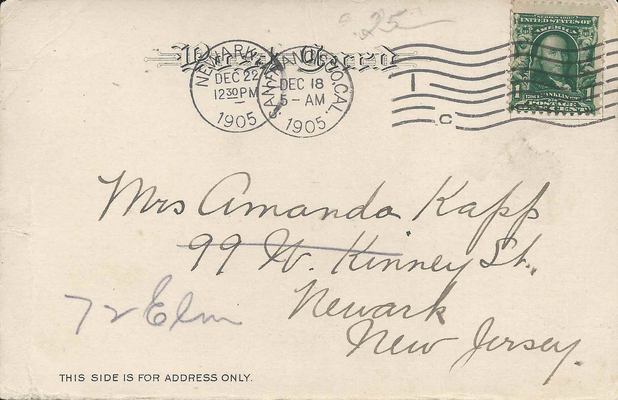 25
Post Card
NEWARK
DEC 22
12 30 PM
1905
SAN FRANCISCO, CAL.
DEC 18
5 - AM
1905
1
C
SERIES 1902
UNITED STATES OF
AMERICA
FRANKLIN
POSTAGE
1 ONE CENT
Mrs Amanda Kapp
99 W. Kinney St.,
72 Elm
Newark
New Jersey.
THIS SIDE IS FOR ADDRESS ONLY.